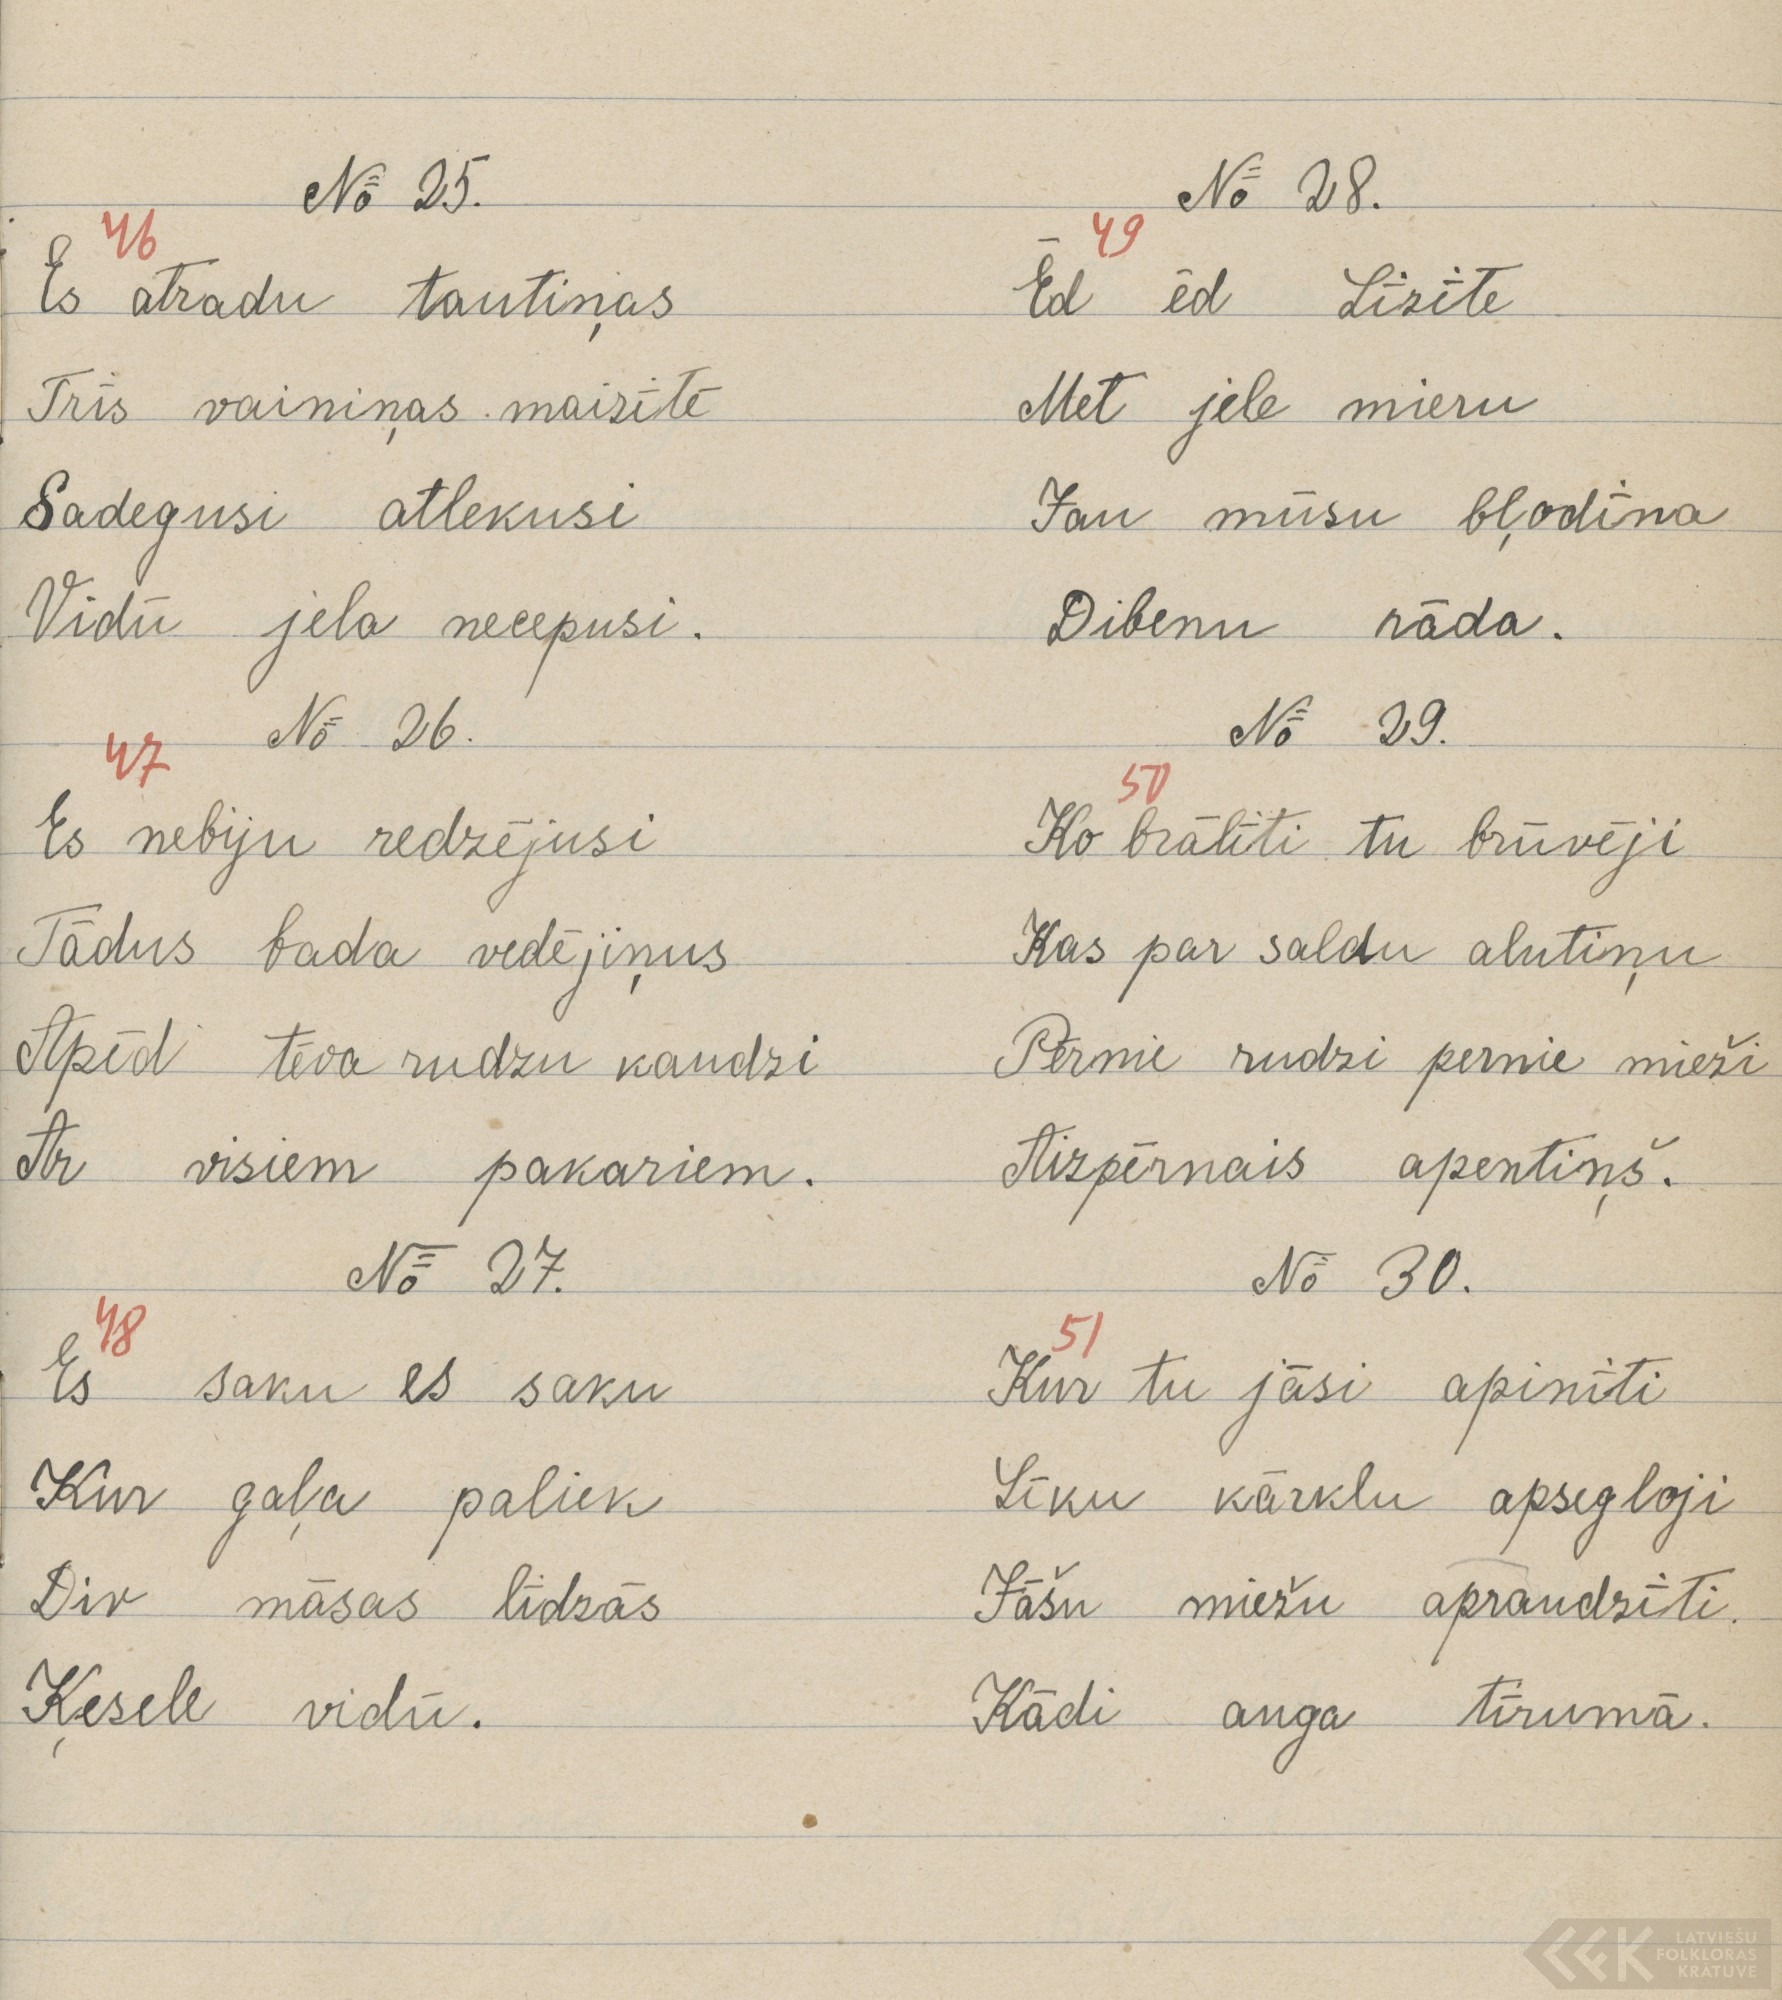 № 25.
46
Es atradu tautiņas
Trīs vainiņas maizītē
Sadegusi atlekusi
Vidū jela necepusi.
№ 26.
47
Es nebiju redzējusi
Tādus bada vedējiņus
Apēd tēva rudzu kaudzi
Ar visiem pakariem.
№ 27.
48
Es saku es saku
Kur gaļa paliek
Div māsas līdzās
Ķesele vidū.
№ 28.
49
Ēd ēd Līzīte
Met jele mieru
Jau mūsu bļodīna
Dibenu rāda.
№ 29.
50
Ko brālīti tu brūvēji
Kas par saldu alutiņu
Pērnie rudzi pernie mieži
Aizpērnais apentiņš.
№ 30.
51
Kur tu jāsi apinīti
Līku kārklu apsegloji
Jāšu miežu apraudzīti.
Kādi auga tīrumā.
LATVIEŠU
FOLKLORAS
KRĀTUVE